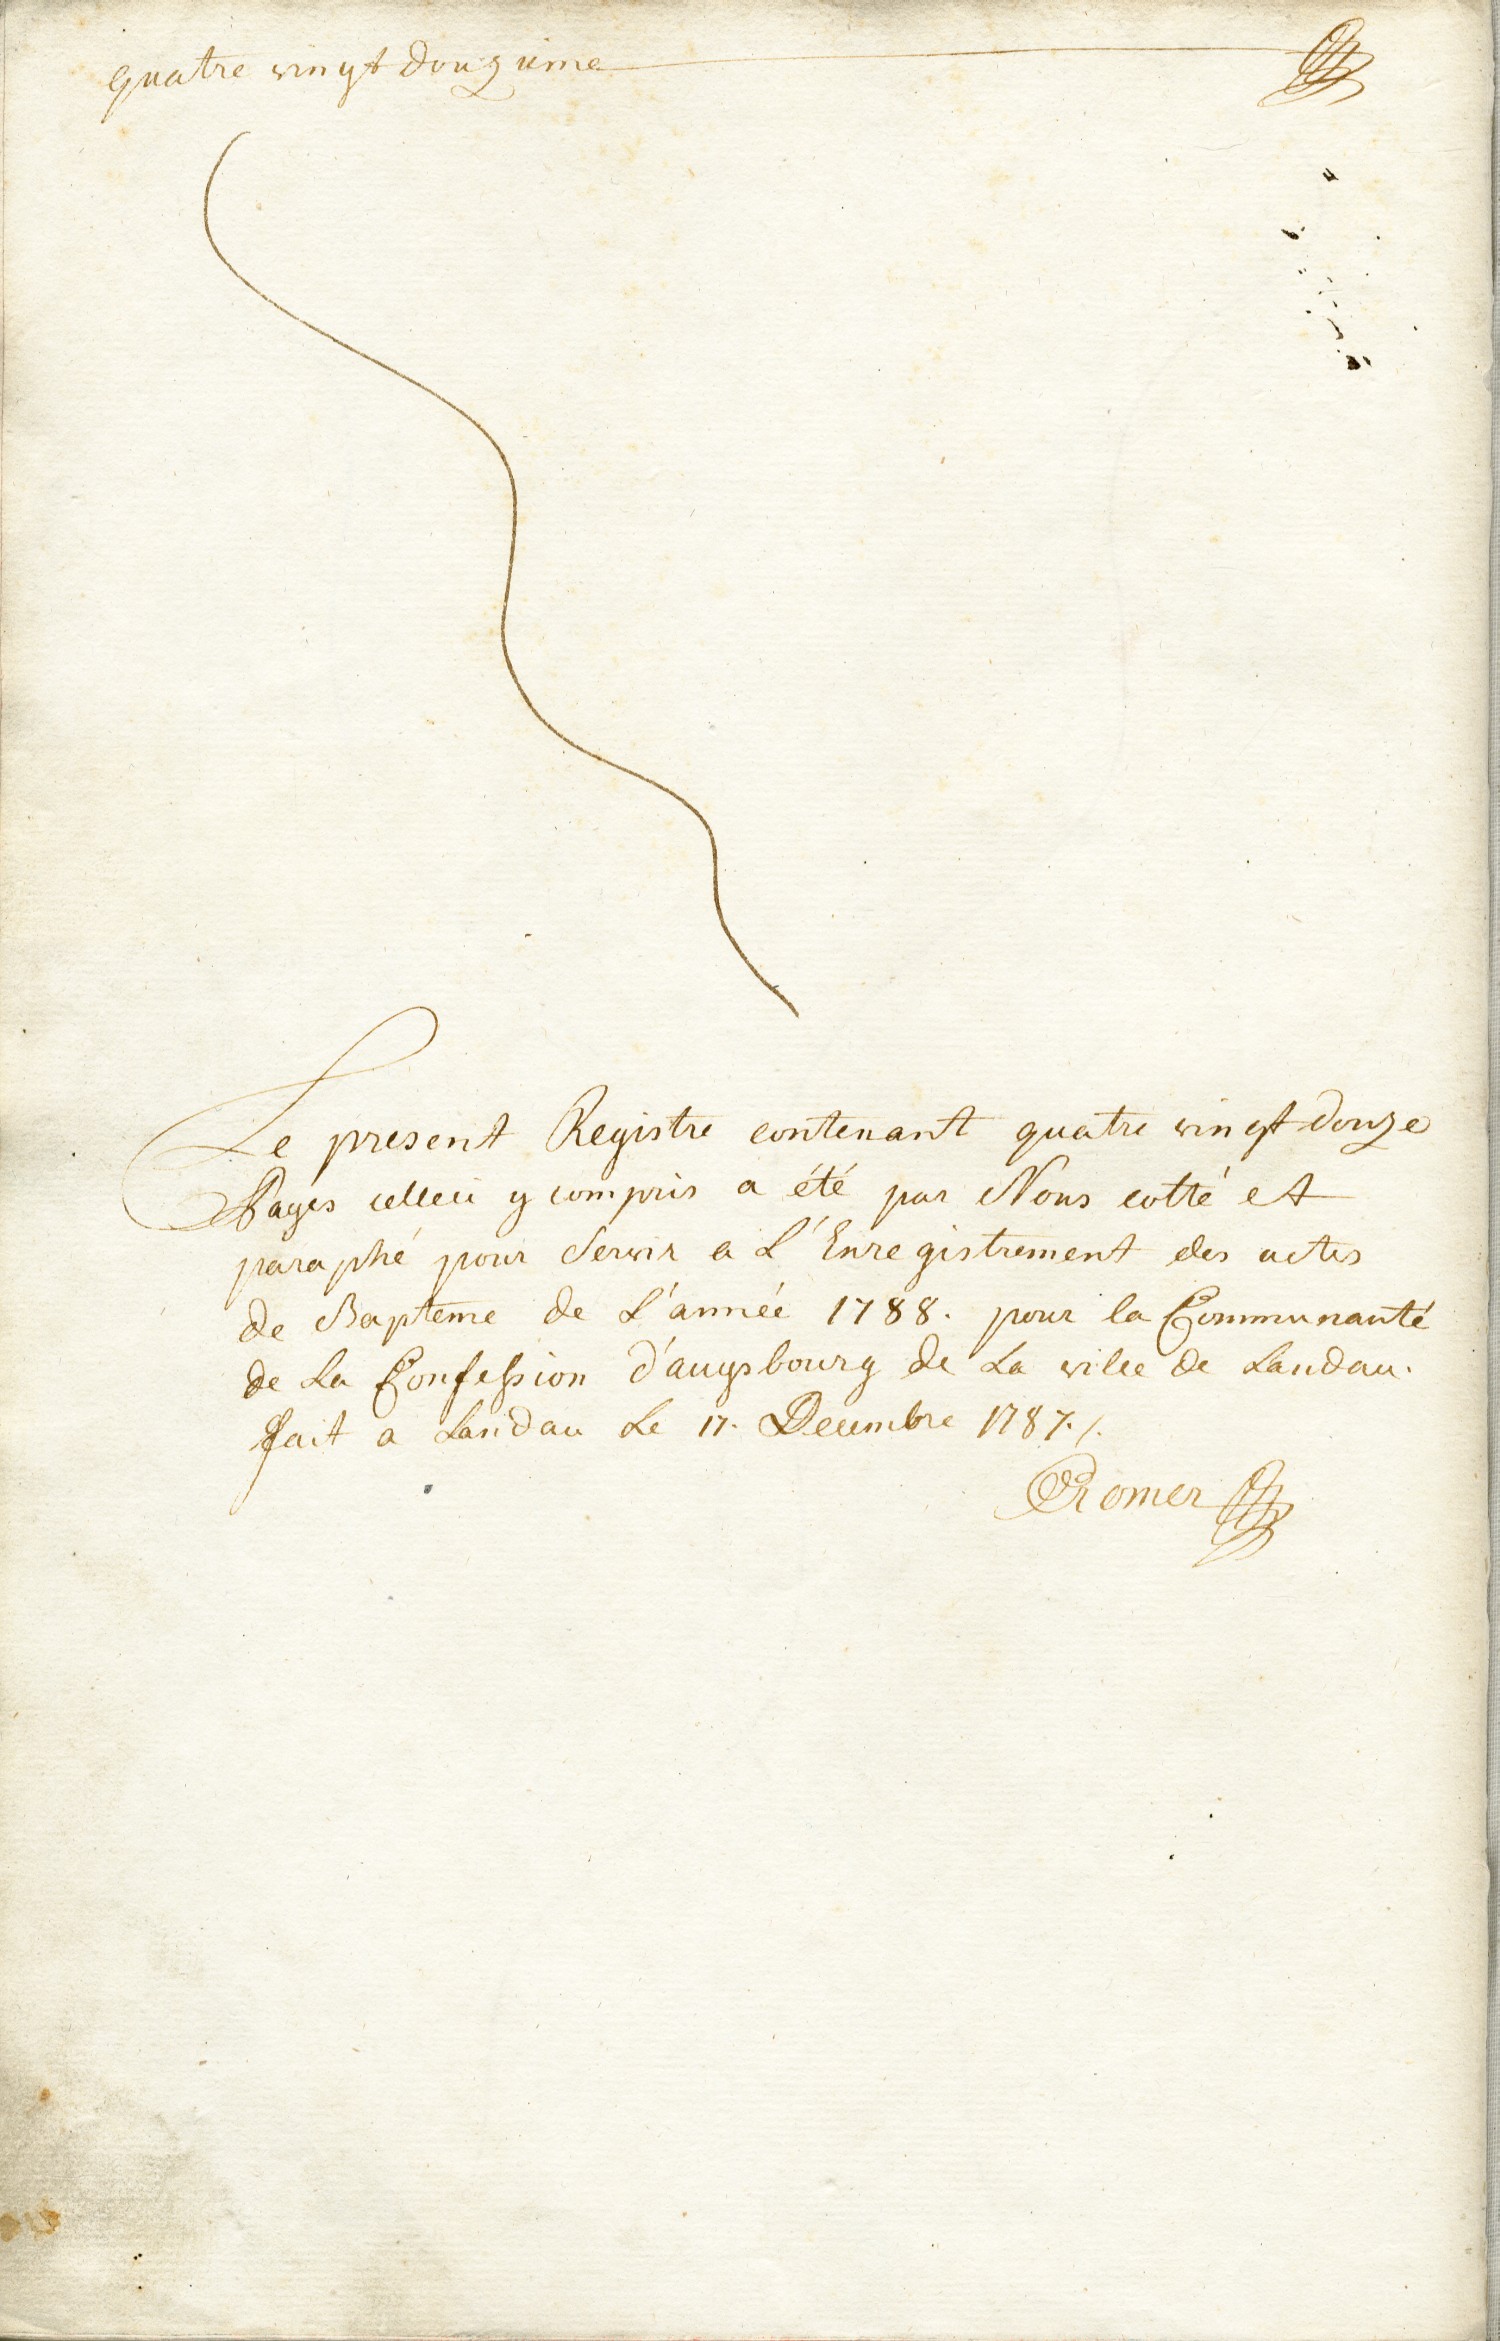 quatre vingt douzieme
Le present Registre contenant quatre vingt douze
Pages celleci y compris a été par Nous cotté et
paraphé pour Servir a L'Enregistrement des actes
de Bapteme de L'année 1788. pour la Communauté
de La Confession d'augsbourg de La ville de Landau.
fait a Landau Le 17. Decembre 1787./.
Romer